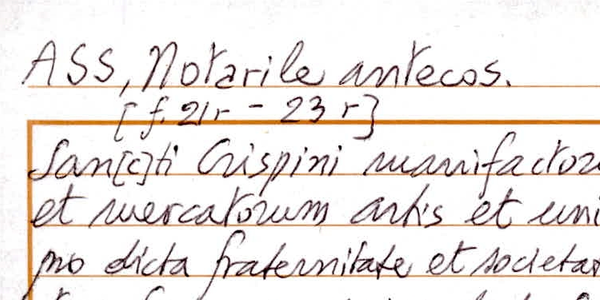 ASS, Notarile antecos.
[f. 21r - 23r]
San[c]ti Crispini manifactor
et mercatorum artis et uni
pro dicta fraternitate et societa